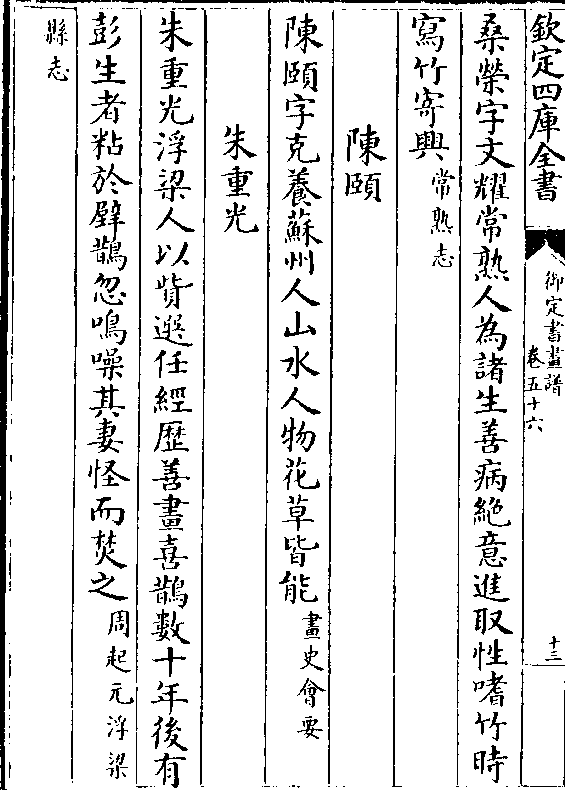 欽定四庫全書
御定書畫譜
卷五十六
十三
桑榮字文耀常熟人為諸生善病絶意進取性嗜竹時
寫竹寄興常熟志
陳頤
陳頤字克養蘇州人山水人物花草皆能畫史會要
朱重光
朱重光浮梁人以貲選任經歴善畫喜鵲數十年後有
彭生者粘於壁鵲忽鳴噪其妻怪而焚之周起元浮梁
縣志